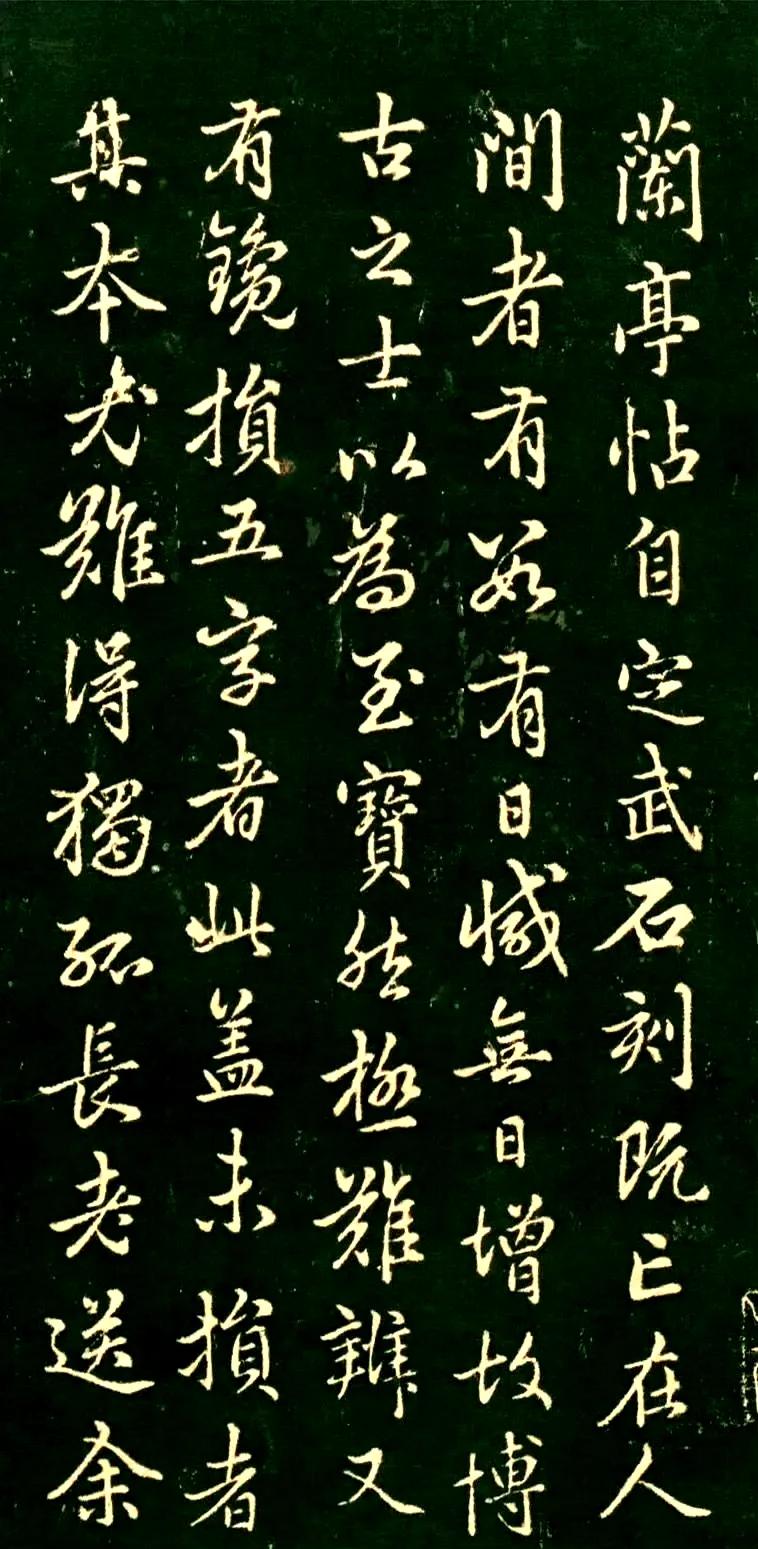 蘭亭帖自定武石刻既亡在人
間者有數有日減無日增故博
古之士以為至寶然極難辨又
有鑱損五字者此蓋未損者
其本尤難得獨孤長老送余